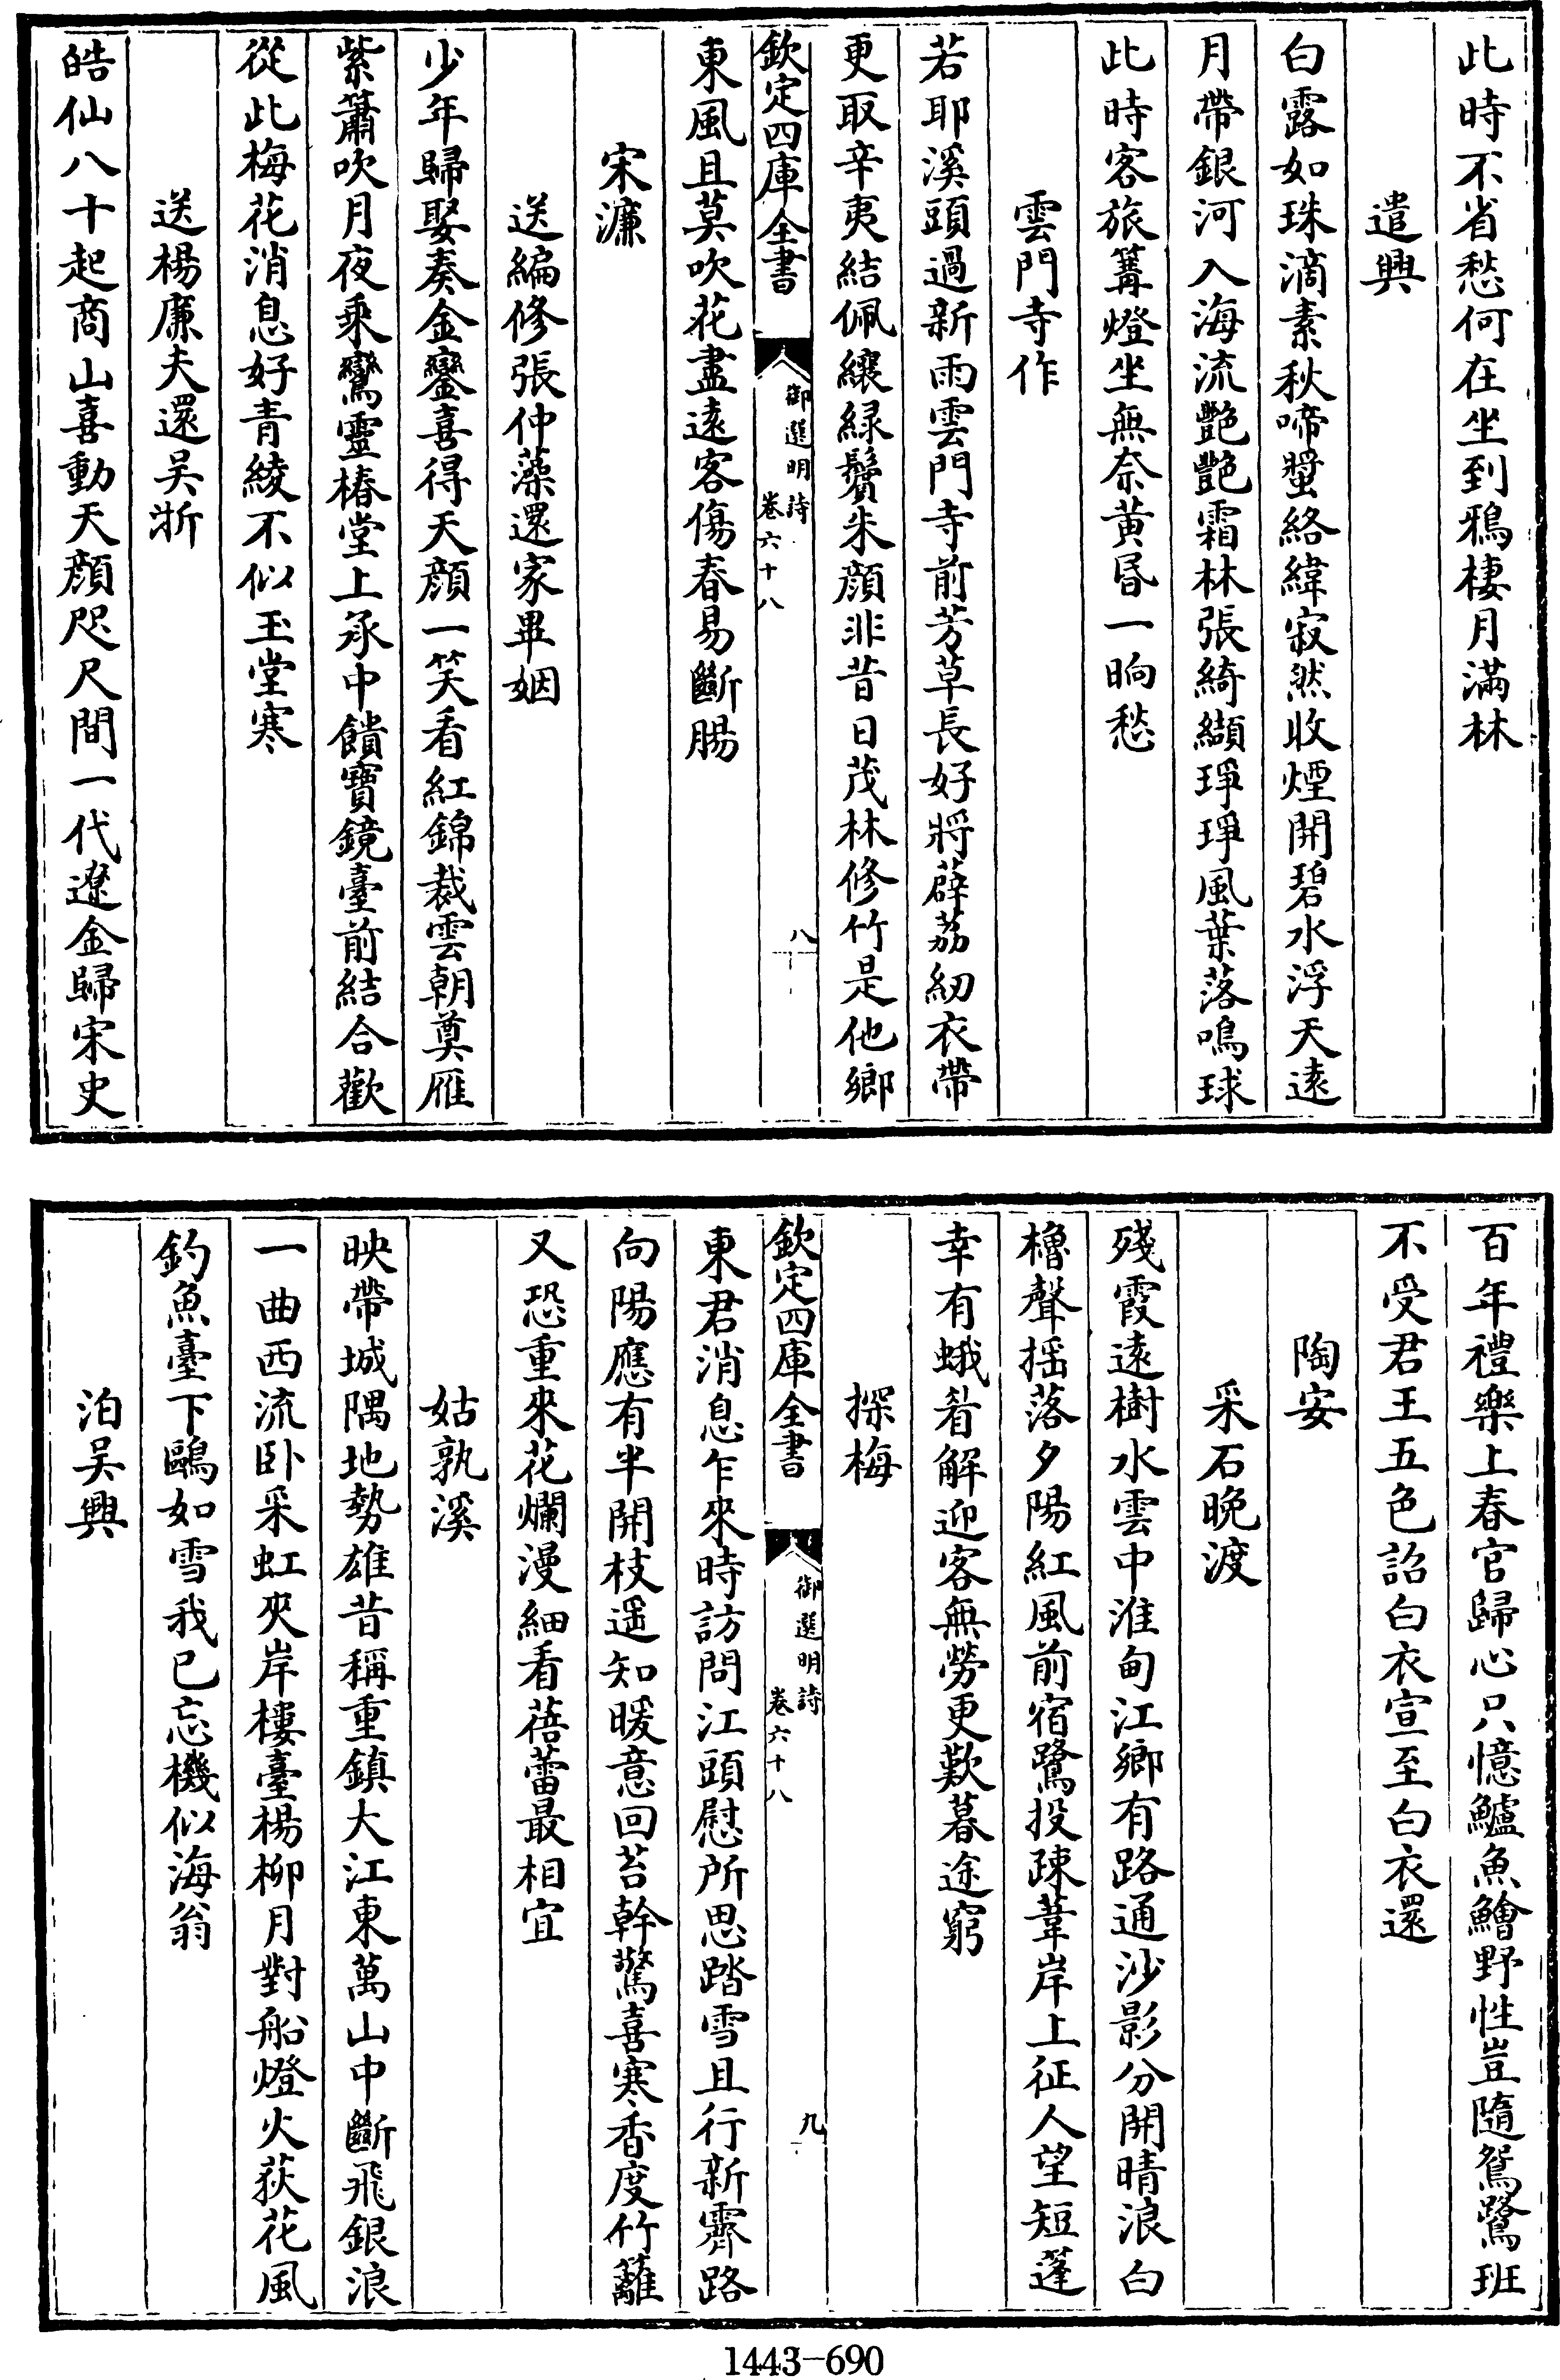 此時不省愁何在坐到鴉棲月滿林
遣興
白露如珠滴素秋啼螿絡緯寂然收煙開碧水浮天遠
月帶銀河入海流艷艷霜林張綺纈琤琤風葉落鳴球
此時客旅篝燈坐無奈黃昏一晌愁
雲門寺作
若耶溪頭過新雨雲門寺前芳草長好將薜荔紉衣帶
更取辛夷結佩纕緑鬢朱顔非昔日茂林修竹是他鄉
欽定四庫全書
御選明詩
卷六十八
八
東風且莫吹花盡遠客傷春易斷腸
宋濂
送編修張仲藻還家畢姻
少年歸娶奏金鑾喜得天顔一笑看紅錦裁雲朝奠雁
紫簫吹月夜乘鸞靈椿堂上承中饋寶鏡臺前結合歡
從此梅花消息好青綾不似玉堂寒
送楊廉夫還吳浙
皓仙八十起商山喜動天顔咫尺間一代遼金歸宋史
百年禮樂上春官歸心只憶鱸魚鱠野性豈隨鴛鷺班
不受君王五色詔白衣宣至白衣還
陶安
采石晚渡
殘霞遠樹水雲中淮甸江鄉有路通沙影分開晴浪白
櫓聲揺落夕陽紅風前宿鷺投疎葦岸上征人望短蓬
幸有蛾眉解迎客無勞更歎暮途窮
探梅
欽定四庫全書
御選明詩
卷六十八
九
東君消息乍來時訪問江頭慰所思踏雪且行新霽路
向陽應有半開枝遥知暖意回苔幹驚喜寒香度竹籬
又恐重來花爛漫細看蓓蕾最相宜
姑孰溪
映帶城隅地勢雄昔稱重鎮大江東萬山中斷飛銀浪
一曲西流卧采虹夾岸樓臺楊柳月對船燈火荻花風
釣魚臺下鷗如雪我已忘機似海翁
泊吳興
1443-690